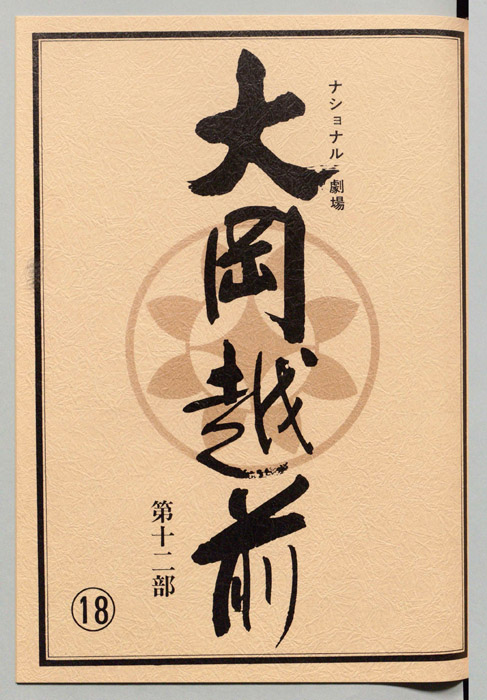 ナショナル劇場
大岡越前
第十二部
18